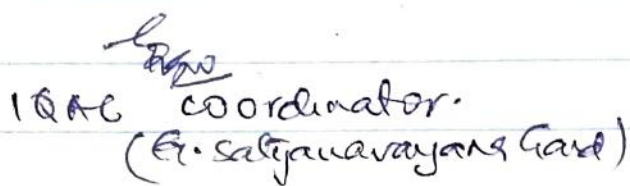 IQAC coordinator.
(G. Satyanarayana Gard)